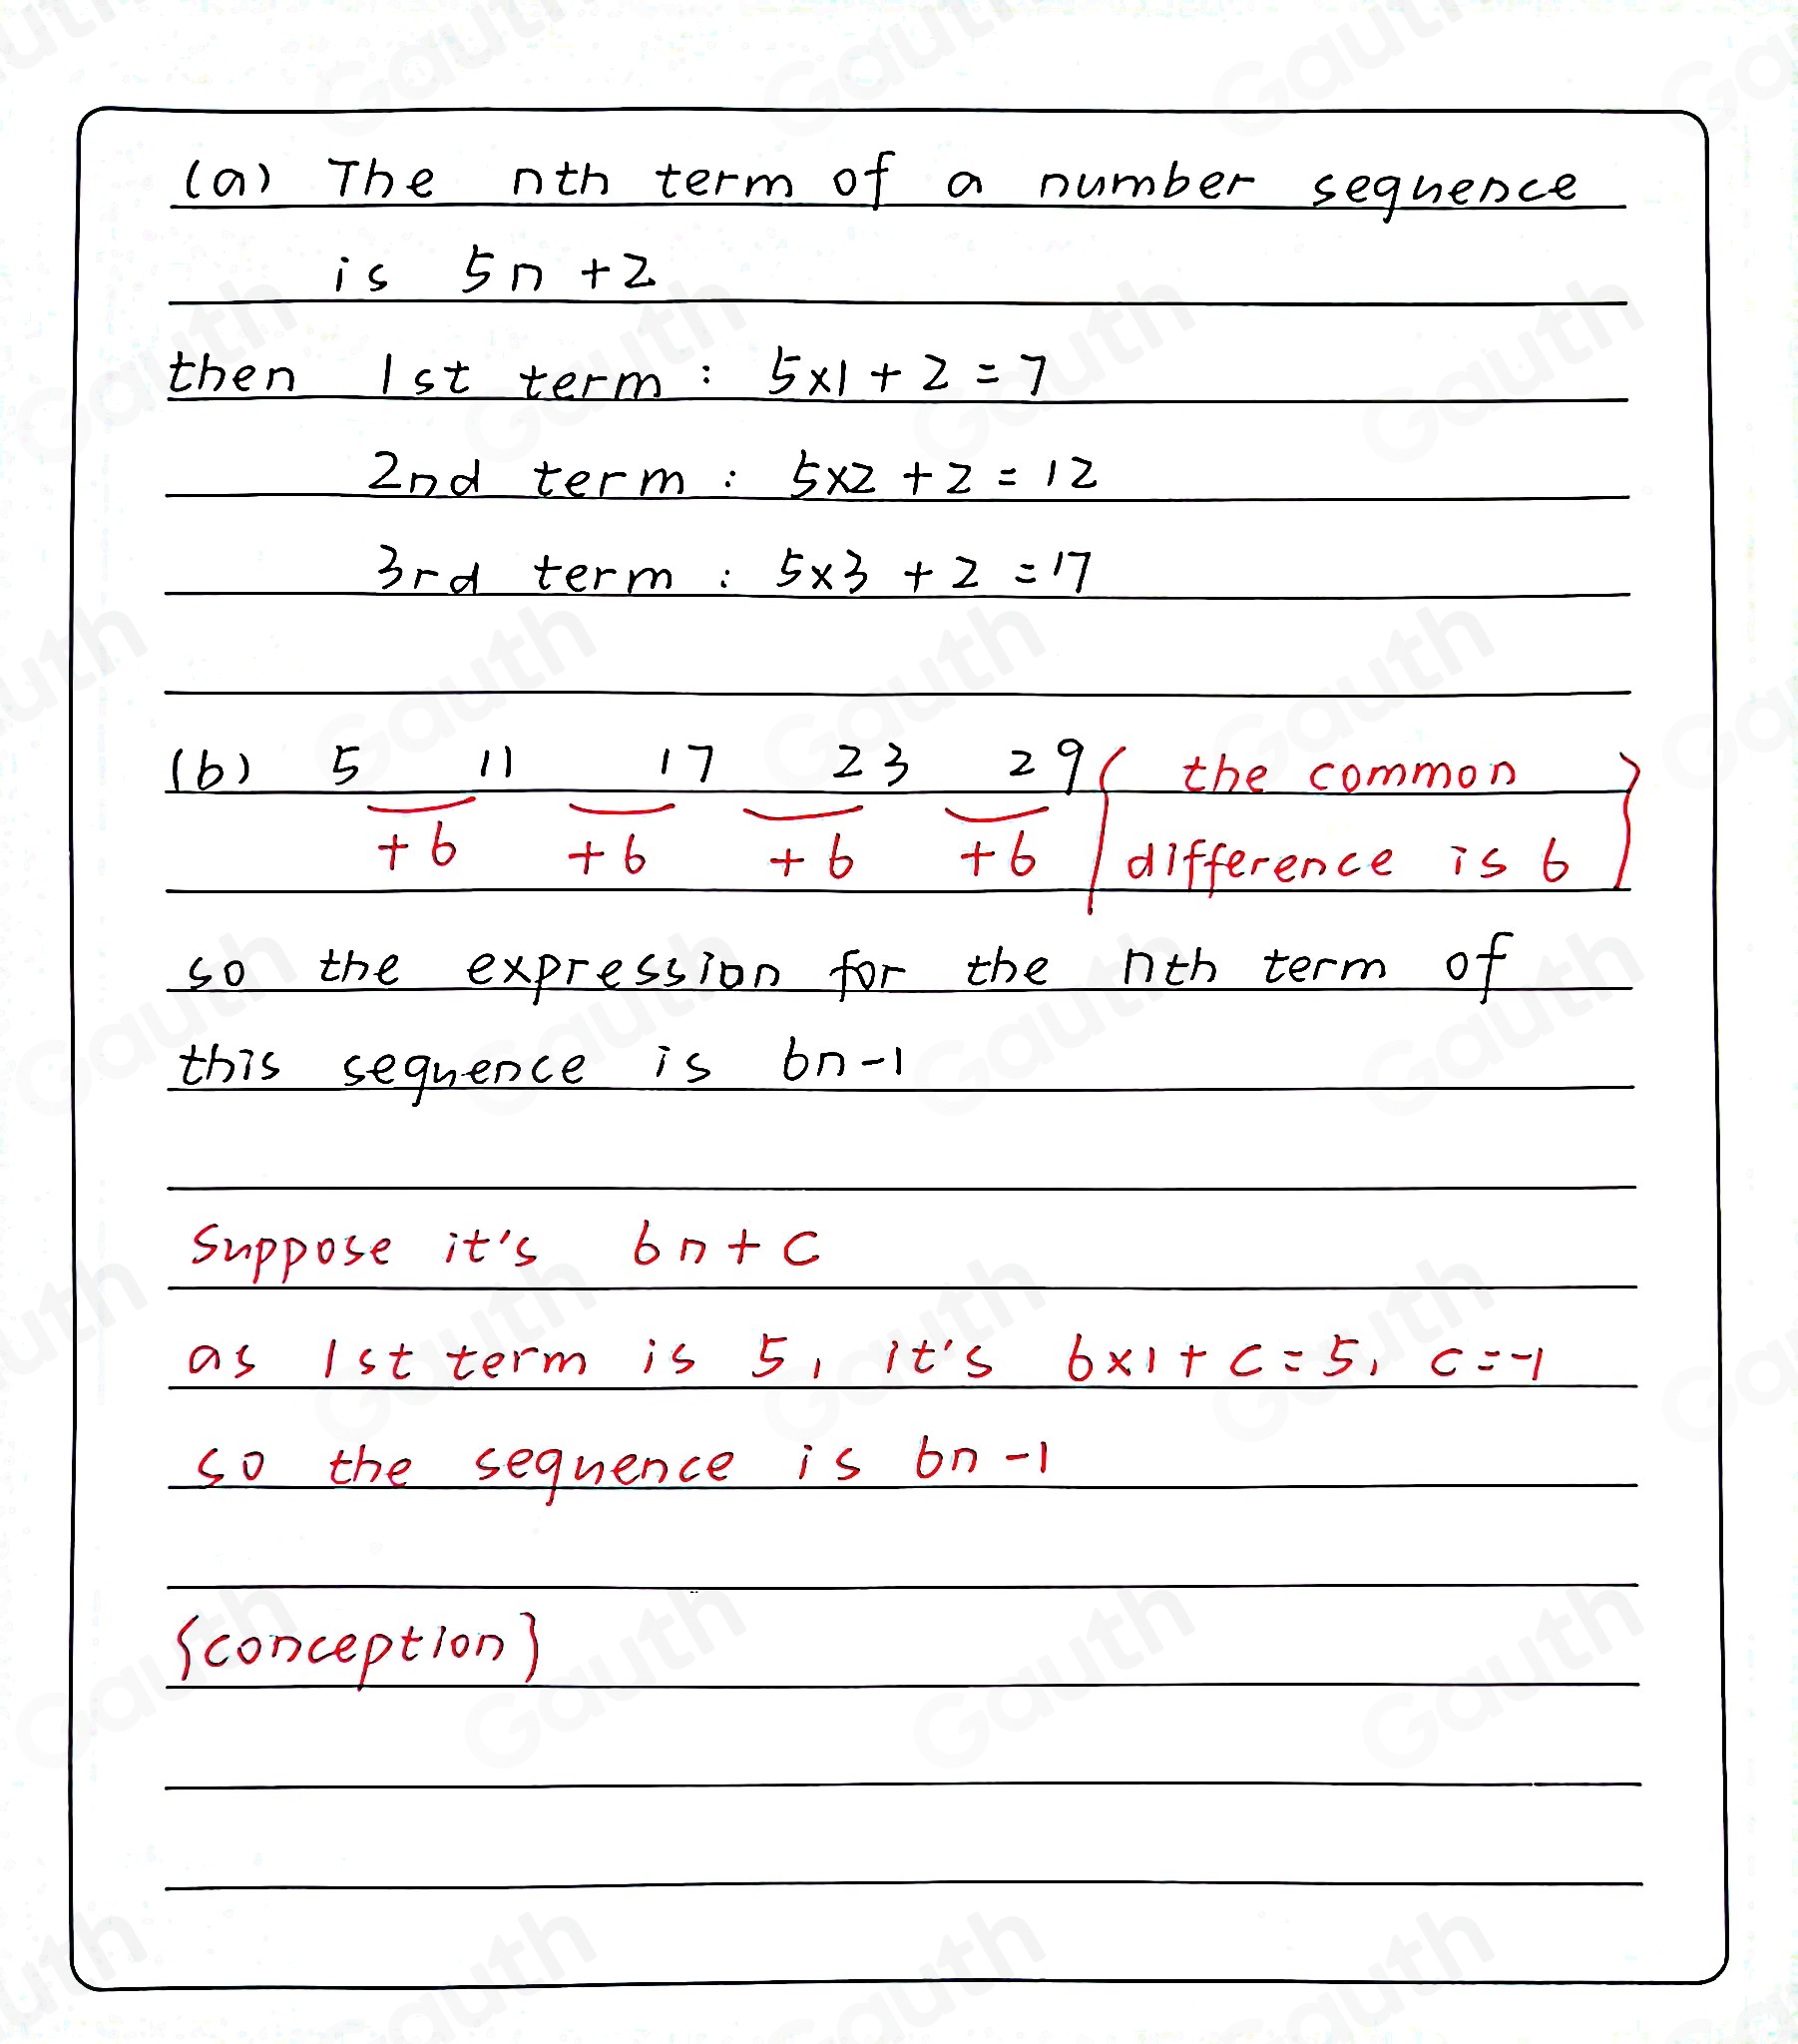 (a) The nth term of a number sequence
is 5n +2
then 1st term : 5×1 + 2 = 7
2nd term : 5×2 + 2 = 12
3rd term : 5×3 + 2 = 17
(b) 5 11 17 23 29 ( the common
+6 +6 +6 +6 difference is 6 )
so the expression for the nth term of
this sequence is 6n-1
Suppose it's 6n + C
as 1st term is 5, it's 6×1 + C = 5, C = -1
so the sequence is 6n -1
{conception}
Gauth